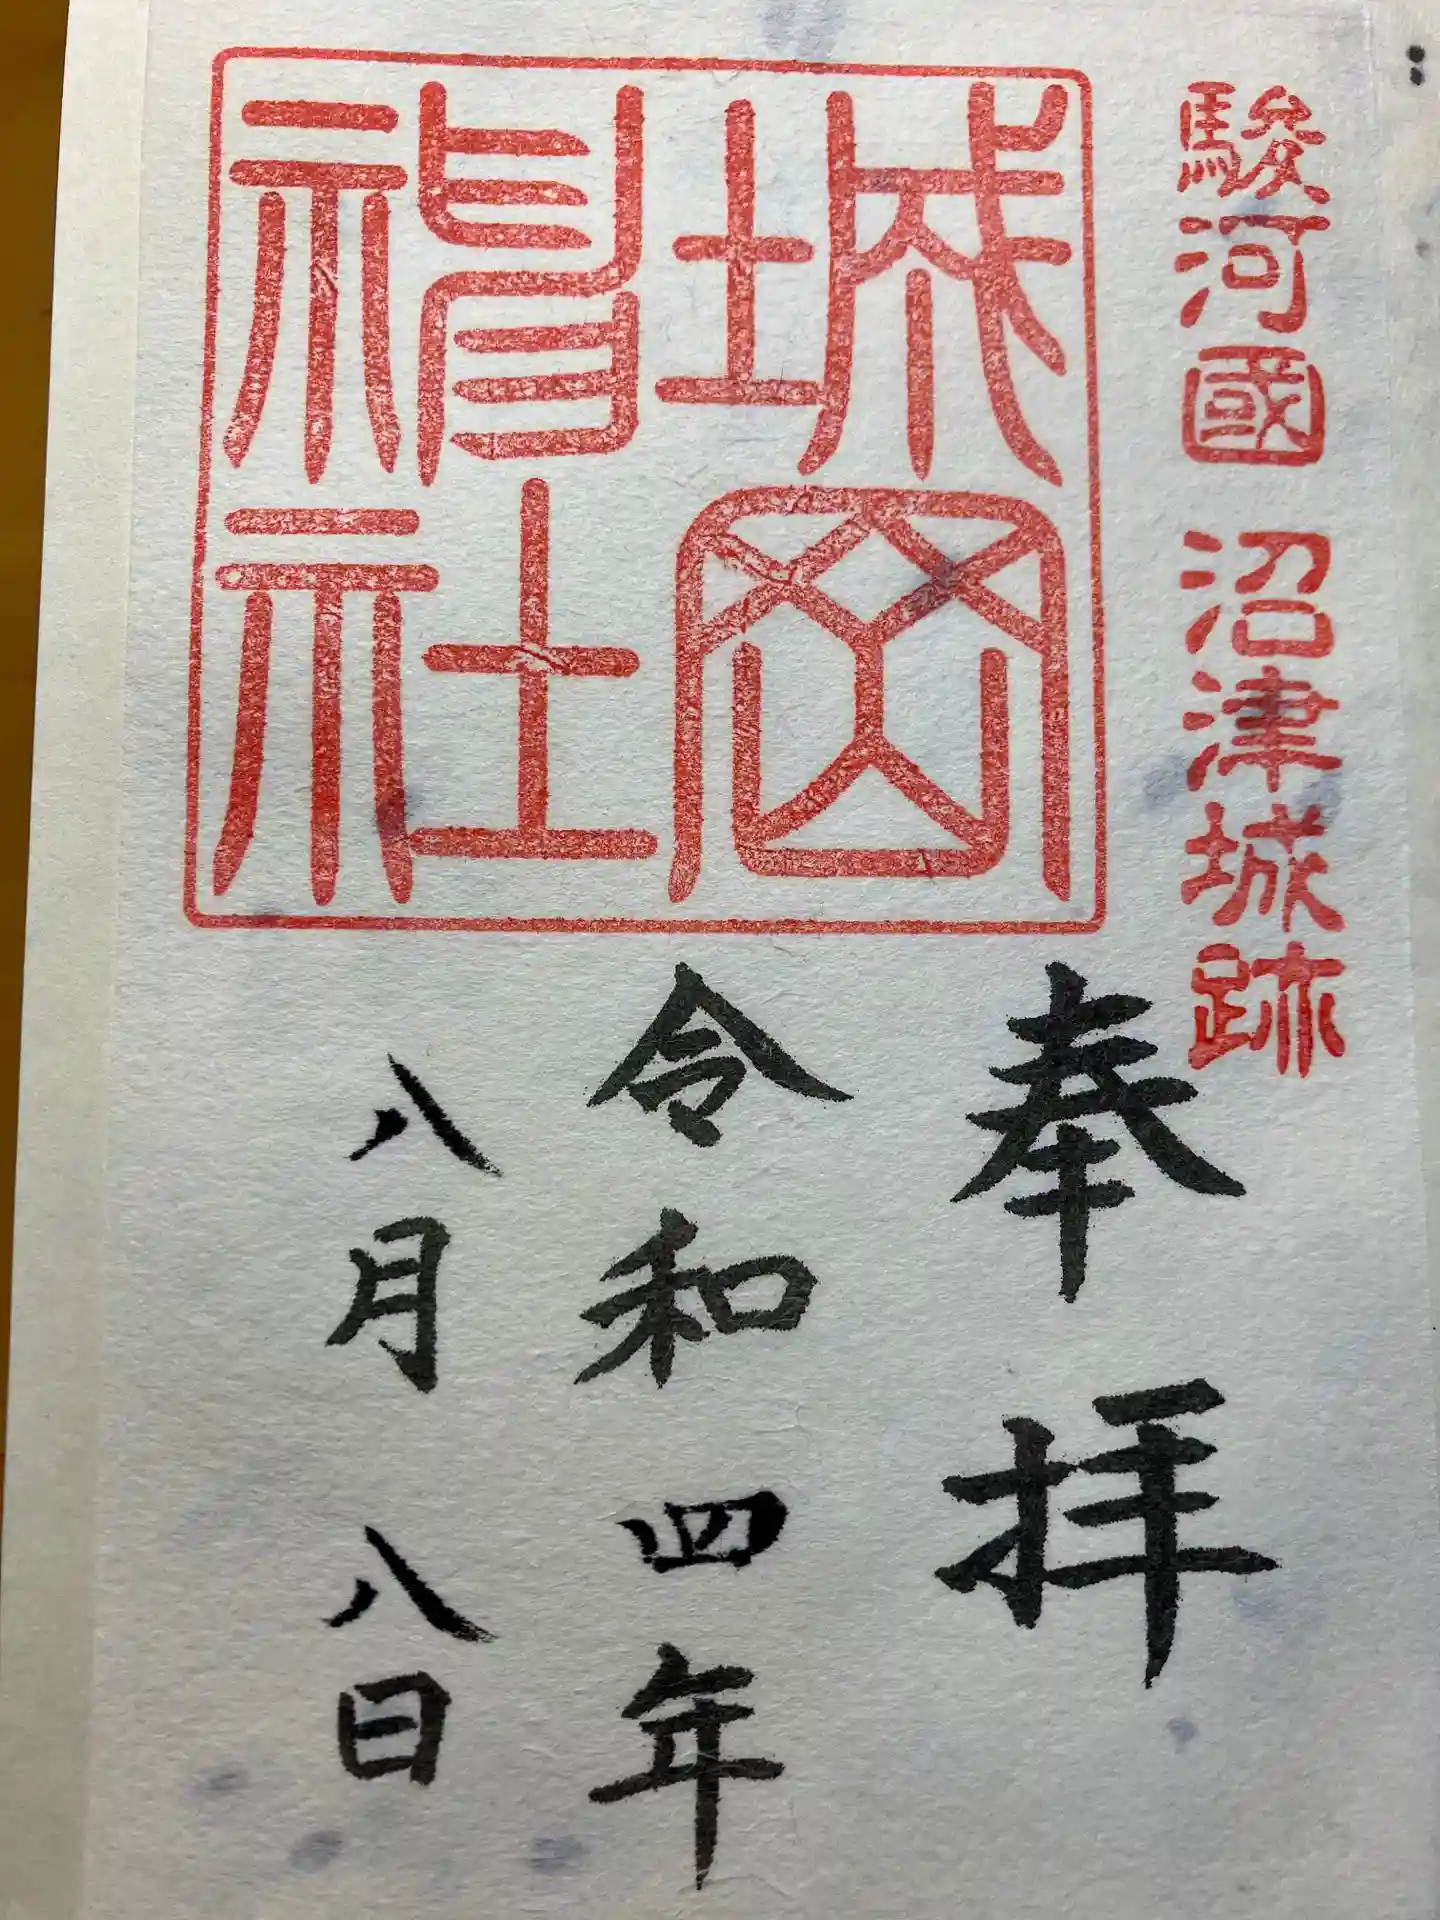 駿河國 沼津城跡
城岡
神社
奉拝
令和四年
八月八日